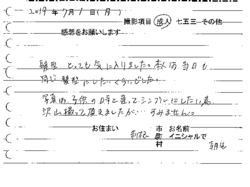 2019年7月1日(月)
撮影項目 成人 七五三 その他
感想をお願いします
髪型 とっても気に入りました。 当日も
同じ髪型にしたいくらいでした。
写真は子供の時と違ってシンプルにしたい
沢山撮って頂きましたが…すみません。
お住まい 市 お名前
郡 イニシャルで
村